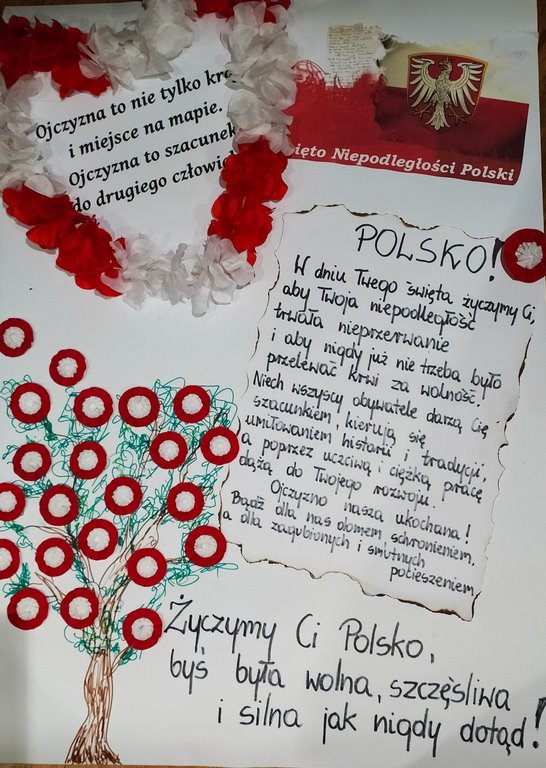 Ojczyzna to nie tylko kra
i miejsce na mapie.
Ojczyzna to szacunek
do drugiego człowie
ięto Niepodległości Polski
POLSKO!
W dniu Twego święta życzymy Ci,
aby Twoja niepodległość
trwała nieprzerwanie
i aby nigdy już nie trzeba było
przelewać krwi za wolność.
Niech wszyscy obywatele darzą Cię
szacunkiem, kierują się
umiłowaniem historii i tradycji,
a poprzez uczciwą i ciężką pracę
dążą do Twojego rozwoju.
Ojczyzno nasza ukochana!
Bądź dla nas domem, schronieniem,
a dla zagubionych i smutnych
pocieszeniem
Życzymy Ci Polsko,
byś była wolna, szczęśliwa
i silna jak nigdy dotąd!